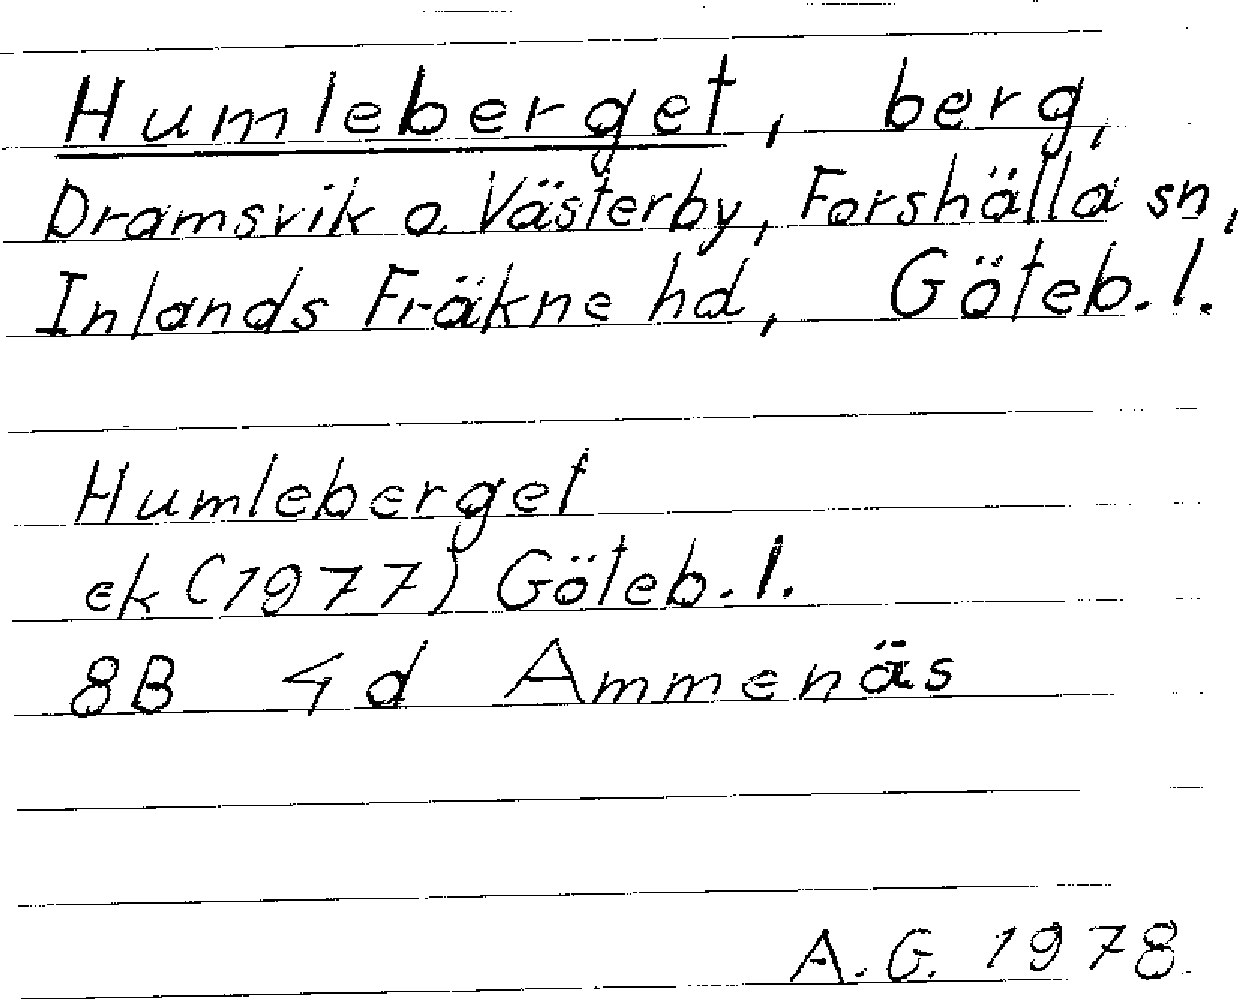 Humleberget, berg,
Dramsvik o. Västerby, Forshälla sn,
Inlands Fräkne hd, Göteb. l.
Humleberget
ek (1977) Göteb. l.
8B 4d Ammenäs
A. G. 1978